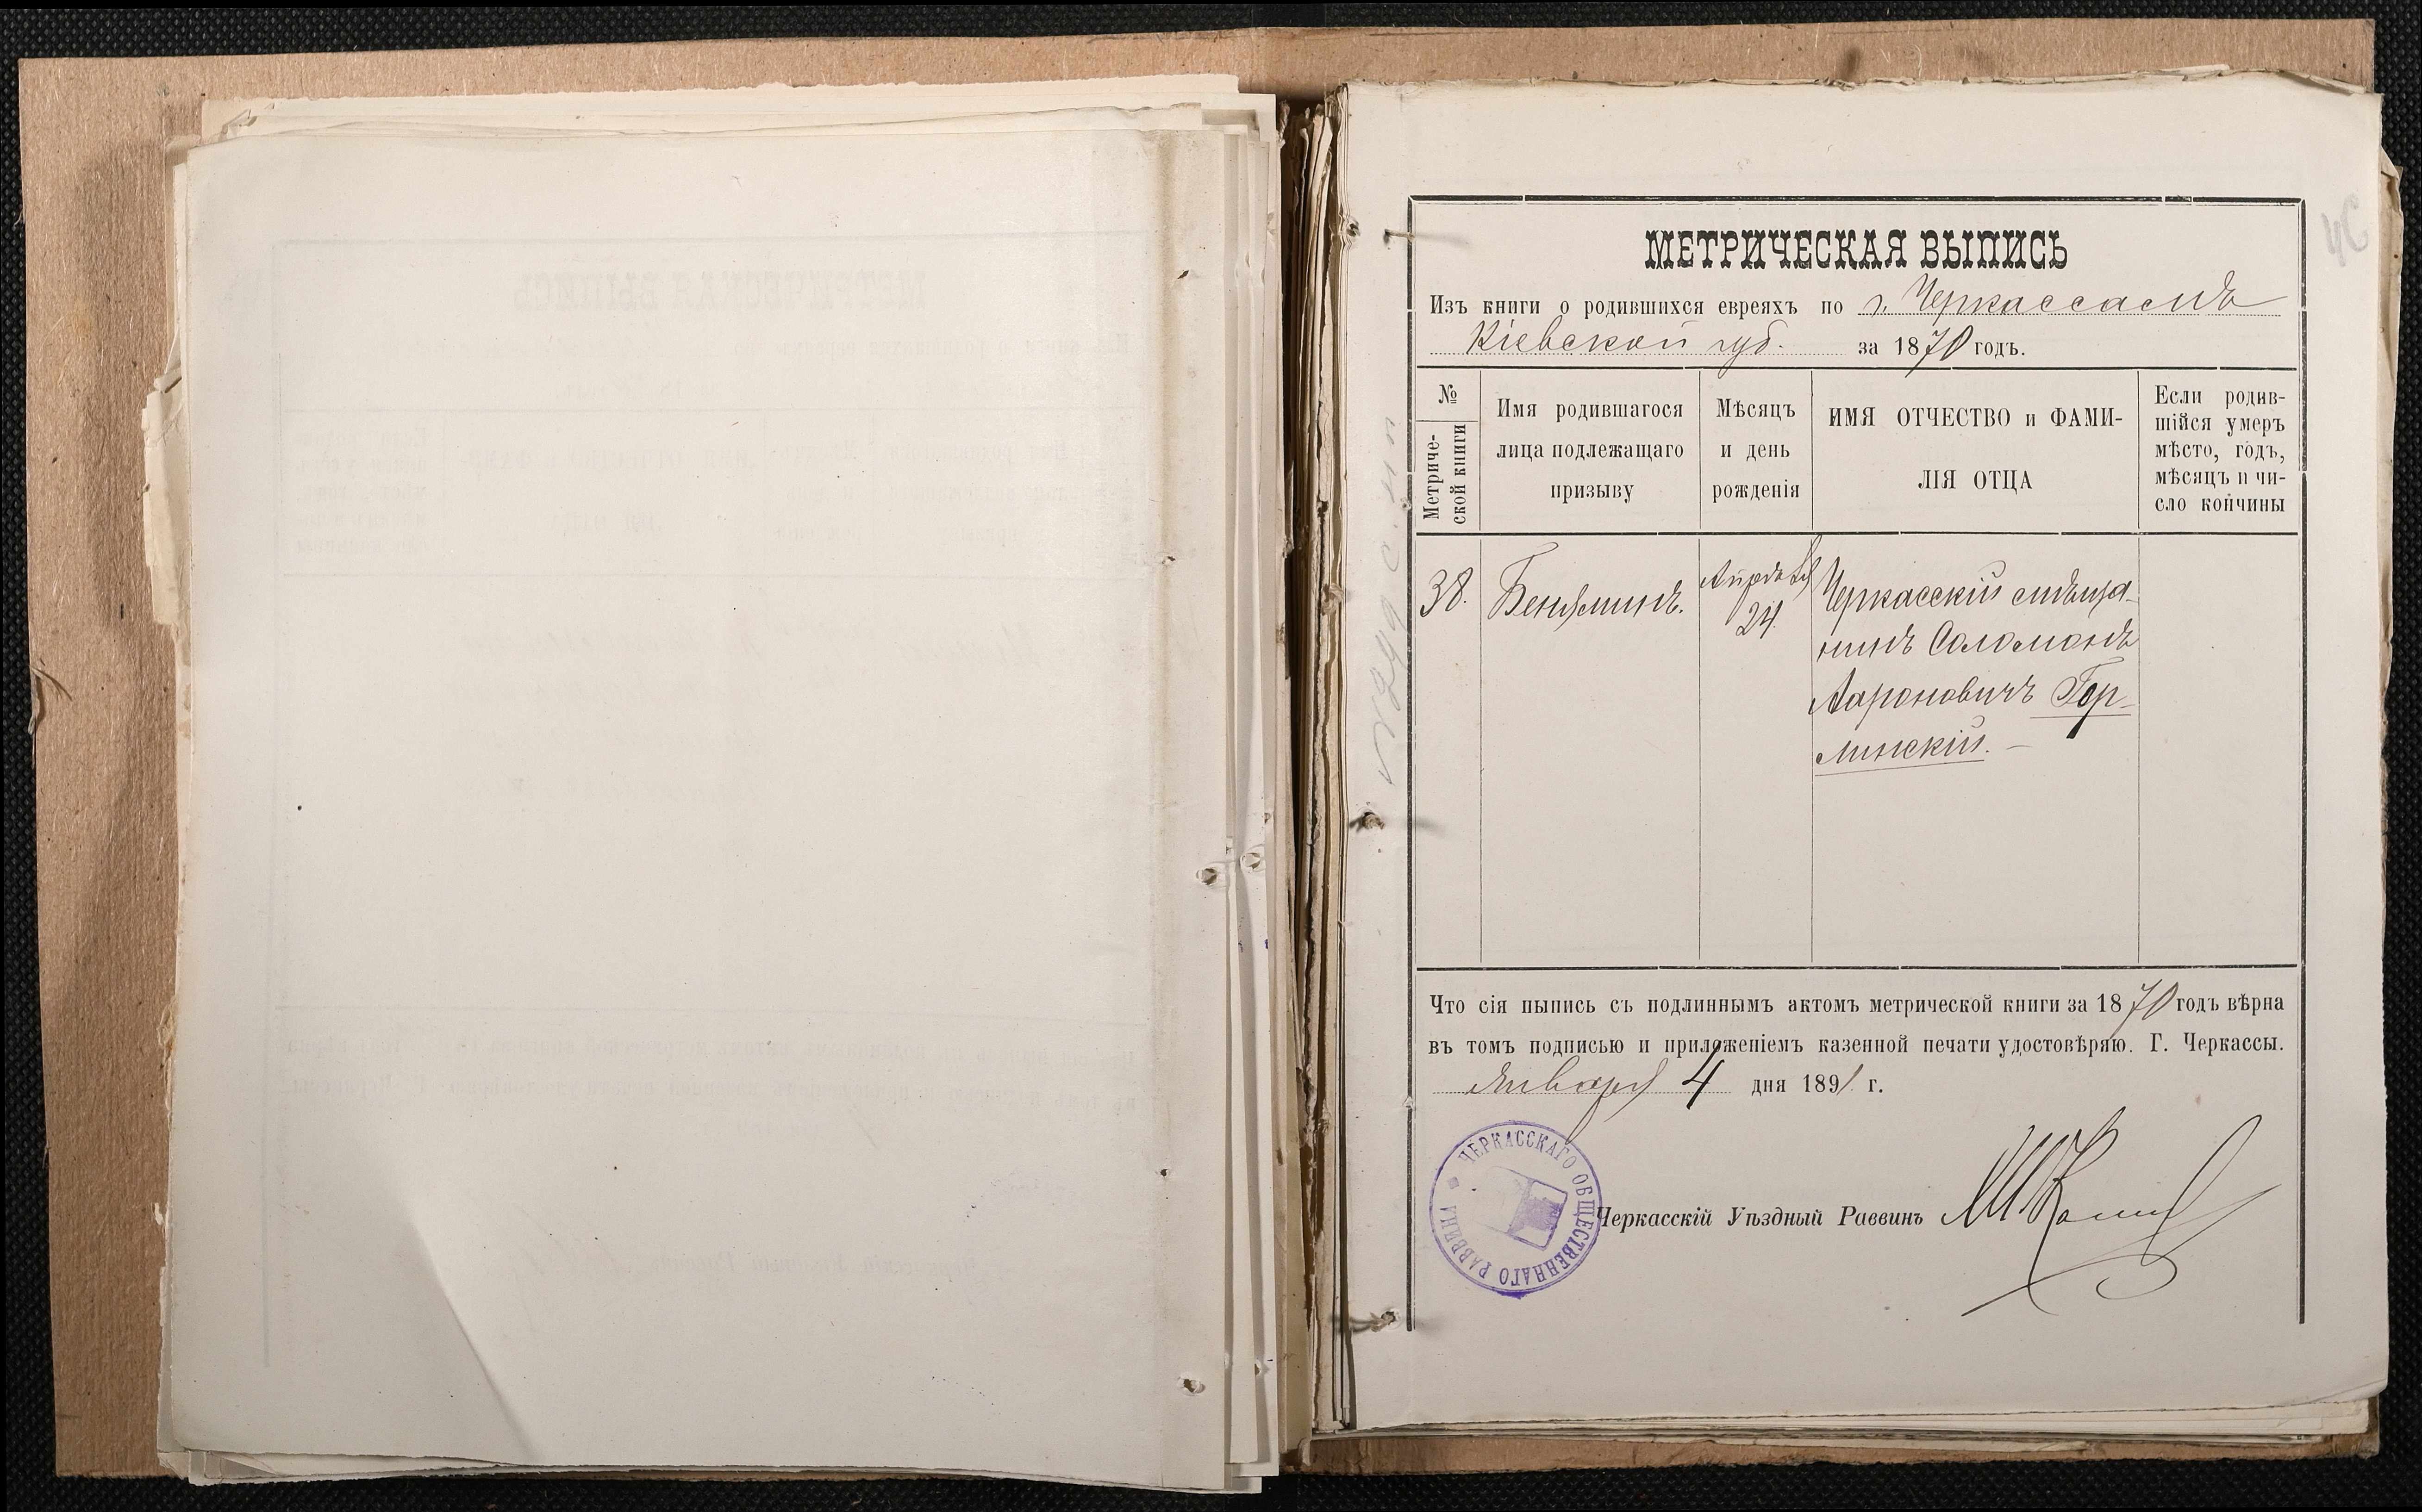 МЕТРИЧЕСКАЯ ВЫПИСЬ
Изъ книги о родившихся евреяхъ по г. Черкассамъ
Кіевской губ. за 1870 годъ.
№
Метриче-
ской книги
Имя родившагося
лица подлежащаго
призыву
Мѣсяцъ
и день
рожденія
ИМЯ ОТЧЕСТВО и ФАМИ-
ЛІЯ ОТЦА
Если родив-
шійся умеръ
мѣсто, годъ,
мѣсяцъ и чи-
сло кончины
38.
Беніяминъ.
Апрѣля
24
Черкасскій мѣща-
нинъ Соломонъ
Аароновичъ Гор-
линскій. —
Что сія пыпись съ подлиннымъ актомъ метрической книги за 1870 годъ вѣрна
въ томъ подписью и приложеніемъ казенной печати удостовѣряю. Г. Черкассы.
Января 4 дня 1891 г.
ЧЕРКАССКАГО ОБЩЕСТВЕННАГО РАВВИНА
Черкасскій Уѣздный Раввинъ